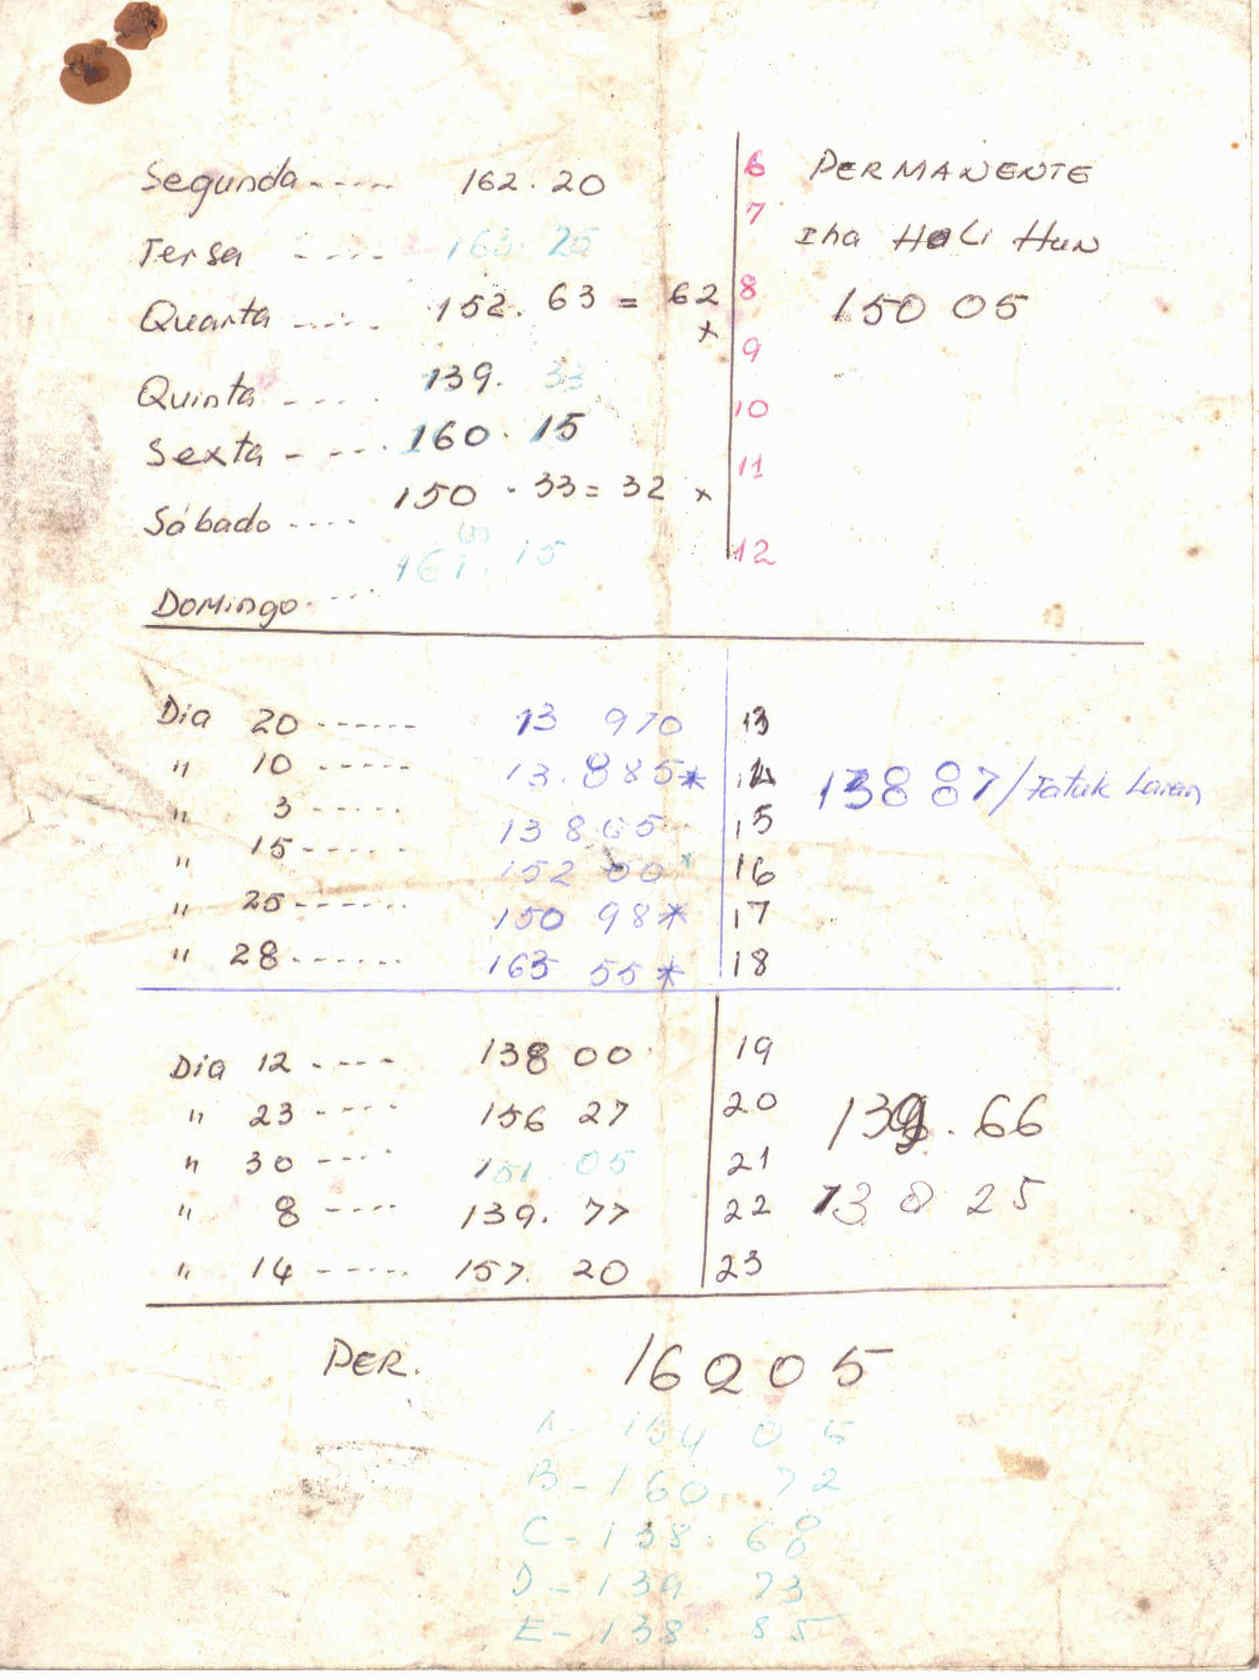 Segunda ----- 162.20
Tersa ---- 163.25
Quarta ---- 152.63 = 62 x
Quinta ---- 139. 33
Sexta ---- 160.15
Sábado ---- 150.33 = 32 x
Domingo ---- 161.15
6 PERMANENTE
7 Iha HaLi Hun
8 150 05
9
10
11
12
Dia 20 ------ 13 970
" 10 ----- 13.885*
" 3 ----- 13865
" 15 ----- 152 00 *
" 25 ------ 150 98*
" 28 ------ 163 55*
13
14 138 87/Fatuk Laran
15
16
17
18
Dia 12 ---- 138 00
" 23 ---- 156 27
" 30 ---- 151.05
" 8 ---- 139. 77
" 14 ----- 157. 20
19
20 .66
21
22 138 25
23
PER. 16205
A- 154 05
B-160. 72
C-138.68
D-139 73
E-138.85